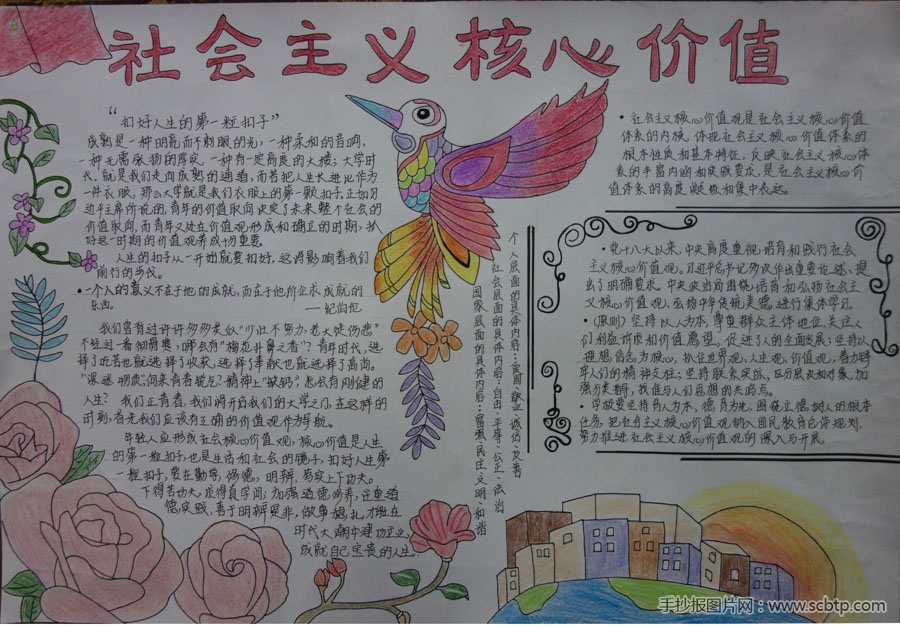 社会主义核心价值
“扣好人生的第一粒扣子”
成熟是一种明亮而不刺眼的光，一种柔和的音响，
一种无需张扬的厚实，一种有一定高度的大楼；大学时
代，就是我们走向成熟的通道，而若把人生长进比作为
一件衣服，那么大学就是我们衣服上的第一颗扣子。正如习
近平主席所说的，青年的价值取向决定了未来整个社会的
价值取向，而青年又处在价值观形成和确立的时期，扒
好这一时期的价值观养成十切重要。
人生的扣子从一开始就要扣好。这将影响着我们
前行的步伐。
·一个人的意义不在于他的成就，而在于他企求成就的
东西。
——纪伯伦
我们富有过许许多多类似“少壮不努力，老大徒伤悲”
不经过一番彻骨寒，哪会有“梅花扑鼻之香”？青年时代，选
择了吃苦也就选择了收获，选择了奉献也就选择了高尚。
我们正青春，我们调开启我们的大学之门，在这样的
时刻，首先我们应该有正确的价值观作为导航。
年轻人应形成社会核心价值观，核心价值是人生
的第一粒扣子，也是生活和社会的镜子，扣好人生第
一粒扣子，要在勤学，修德，明辨，笃实上下功夫。
下得苦功夫，求得真学问；加强道德修养，注重道
德实践，善于明辨是非，做事
时代大潮中建功立业，
成就自己宝贵的人生。
个人层面的具体内容：爱国、敬业、诚信、友善
社会层面的具体内容：自由、平等、公正、法治
国家层面的具体内容：富强、民主、文明、和谐
·社会主义核心价值观是社会主义核心价值
体系的内核，体现社会主义核心价值体系的
根本性质和基本特征，反映社会主义核心价值体
系的丰富内涵和实践要求，是社会主义核心价
值体系的高度凝练和集中表达。
·党十八大以来，中央高度重视培育和践行社会
主义核心价值观。习近平总书记多次作出重要论述、提
出了明确要求。中央政治局围绕培育和弘扬社会主
义核心价值观、弘扬中华传统美德进行集体学习。
·(原则)坚持以人为本，尊重群众主体地位，关注人
们利益诉求和价值愿望，促进人的全面发展；坚持以
理想信念为核心，抓住世界观、人生观、价值观，着力铸
牢人们的精神支柱；坚持联系实际，区分层次和对象，加
强分类指导，找准与人们思想的共鸣点。
·学校要坚持育人为本，德育为先，围绕立德树人的根本
任务，把社会主义核心价值观纳入国民教育总体规划，
努力推进社会主义核心价值观的深入与开展。
手抄报图片网：www.scbtp.com